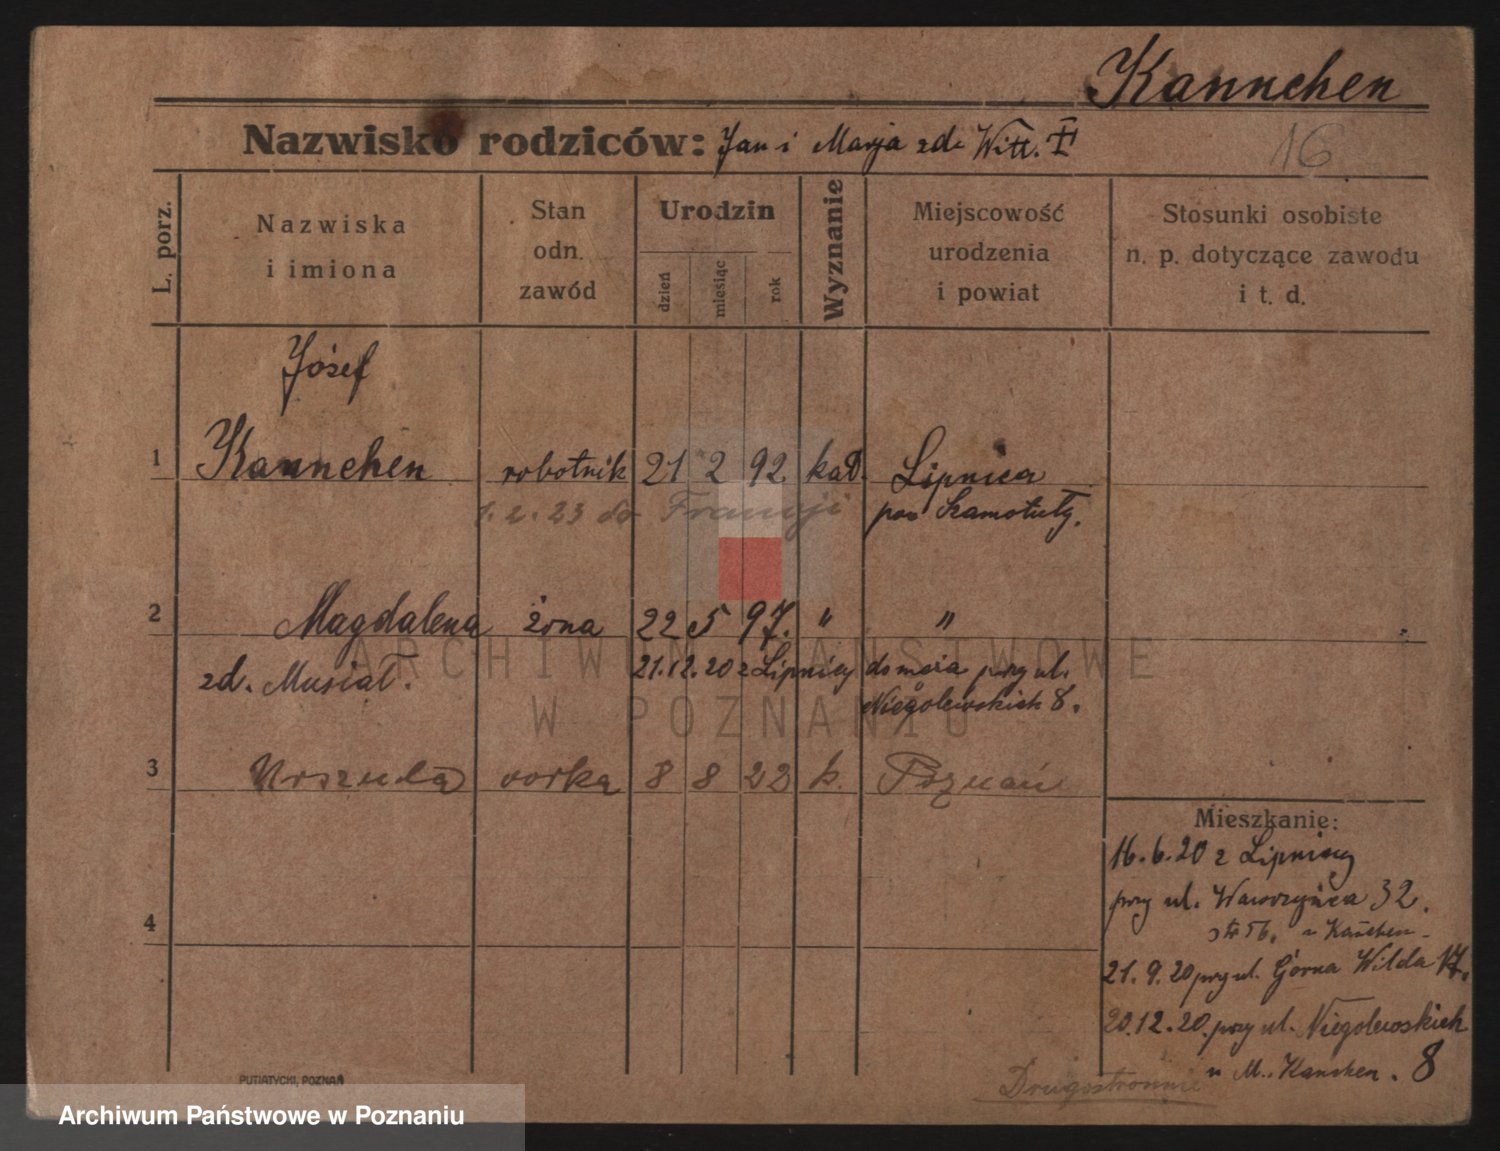 Kannchen
Nazwisko rodziców: Jan i Marja zd. Witt.
16
L. porz.
Nazwiska
i imiona
Stan
odn.
zawód
Urodzin
dzień
miesiąc
rok
Wyznanie
Miejscowość
urodzenia
i powiat
Stosunki osobiste
n. p. dotyczące zawodu
i t. d.
Józef
1 Kannchen robotnik 21 2 92 kat. Lipnica
1.2.23 do Francji pow Szamotuły.
2 Magdalena żona 22 5 97. " "
zd. Musiał. 21.12.20 z Lipnicy do męża przy ul.
Niegolewskich 8.
3 Urszula córka 8 8 22 k. Poznań
Mieszkanie:
16.6.20 z Lipnicy
przy ul. Wawrzyńca 32.
u Kańchen
4
21.9.20 przy ul. Górna Wilda 17.
20.12.20. przy ul. Niegolewskich
u M. Kanchen. 8
Drugostronnie
PUTIATYCKI, POZNAŃ
ARCHIWUM PAŃSTWOWE
W POZNANIU
Archiwum Państwowe w Poznaniu